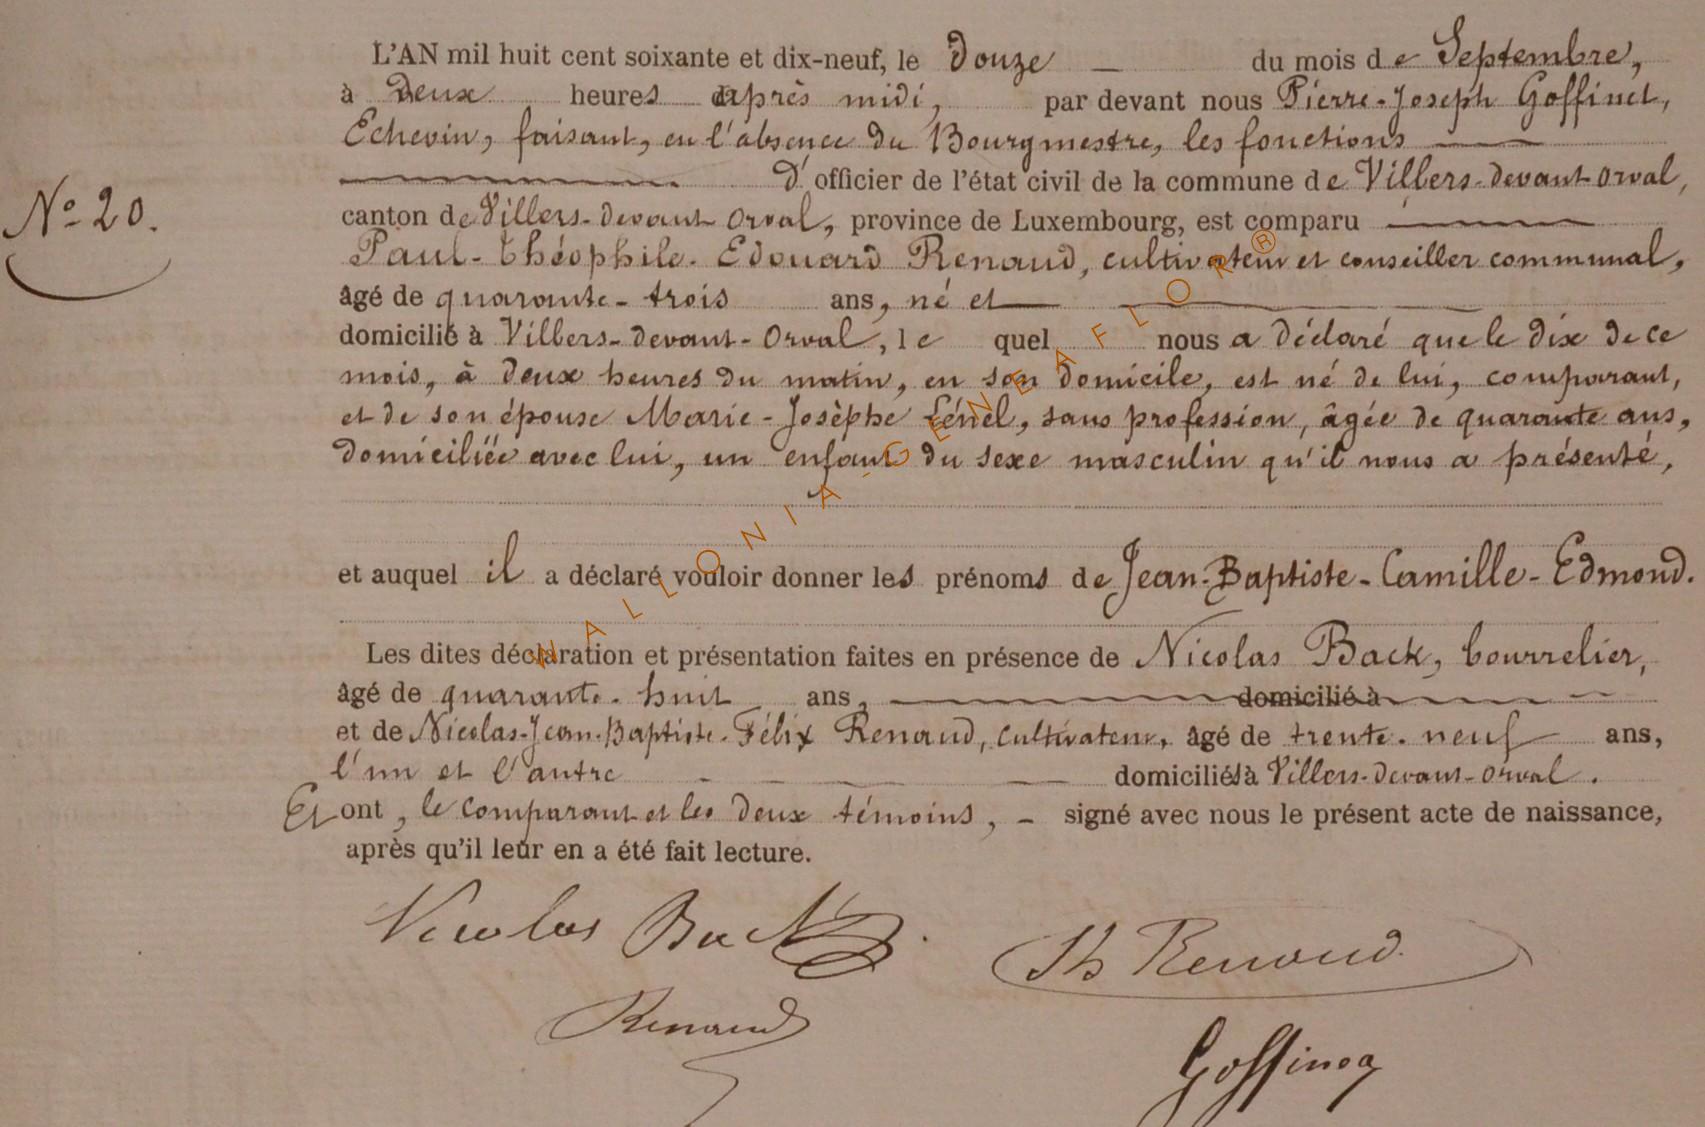 L'AN mil huit cent soixante et dix-neuf, le Douze du mois de Septembre,
à Deux heures après midi, par devant nous Pierre-Joseph Goffinet,
Echevin, faisant, en l'absence du Bourgmestre, les fonctions
D'officier de l'état civil de la commune de Villers-devant-Orval,
N° 20.
canton de Villers-devant-Orval, province de Luxembourg, est comparu
Paul-Théophile-Edouard Renaud, cultivateur et conseiller communal,
âgé de quarante-trois ans, né et
domicilié à Villers-devant-Orval, lequel nous a déclaré que le dix de ce
mois, à deux heures du matin, en son domicile, est né de lui, comparant,
et de son épouse Marie-Josèphe Lénel, sans profession, âgée de quarante ans,
domiciliée avec lui, un enfant du sexe masculin qu'il nous a présenté,
et auquel il a déclaré vouloir donner les prénoms de Jean-Baptiste-Camille-Edmond.
Les dites déclaration et présentation faites en présence de Nicolas Back, bourrelier,
âgé de quarante-huit ans, domicilié à
et de Nicolas-Jean-Baptiste-Félix Renaud, cultivateur, âgé de trente-neuf ans,
l'un et l'autre domiciliés à Villers-devant-Orval.
Et ont, le comparant et les deux témoins, signé avec nous le présent acte de naissance,
après qu'il leur en a été fait lecture.
Nicolas Back
Th Renaud
Renaud
Goffinet
WALLONIA-GENEAFLOR®